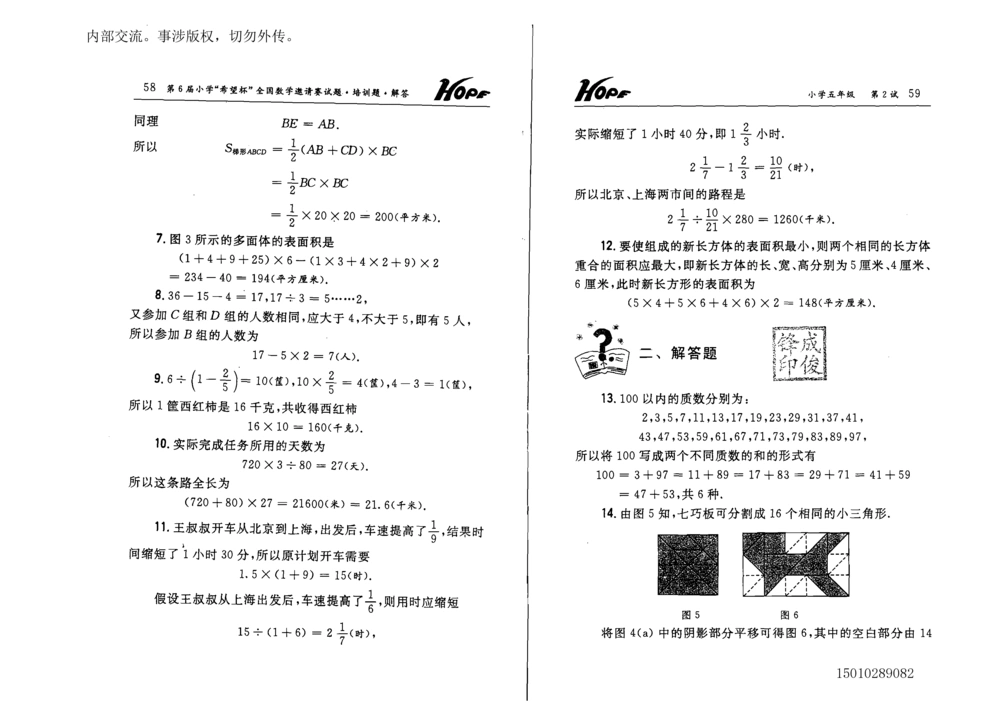 内部交流。事涉版权，切勿外传。
58 第6届小学“希望杯”全国数学邀请赛试题·培训题·解答 HOPE
同理 BE = AB.
所以 S梯形ABCD = 1/2(AB + CD) × BC
= 1/2 BC × BC
= 1/2 × 20 × 20 = 200(平方米).
7. 图 3 所示的多面体的表面积是
(1+4+9+25)×6−(1×3+4×2+9)×2
= 234 − 40 = 194(平方厘米).
8. 36 − 15 − 4 = 17, 17 ÷ 3 = 5……2,
又参加 C 组和 D 组的人数相同,应大于 4,不大于 5,即有 5 人,
所以参加 B 组的人数为
17 − 5 × 2 = 7(人).
9. 6 ÷ (1 − 2/5) = 10(筐), 10 × 2/5 = 4(筐), 4 − 3 = 1(筐),
所以 1 筐西红柿是 16 千克,共收得西红柿
16 × 10 = 160(千克).
10. 实际完成任务所用的天数为
720 × 3 ÷ 80 = 27(天).
所以这条路全长为
(720 + 80) × 27 = 21600(米) = 21.6(千米).
11. 王叔叔开车从北京到上海,出发后,车速提高了 1/9,结果时
间缩短了 1 小时 30 分,所以原计划开车需要
1.5 × (1 + 9) = 15(时).
假设王叔叔从上海出发后,车速提高了 1/6,则用时应缩短
15 ÷ (1 + 6) = 2 1/7(时),
HOPE 小学五年级 第2试 59
实际缩短了 1 小时 40 分,即 1 2/3 小时.
2 1/7 − 1 2/3 = 10/21(时),
所以北京、上海两市间的路程是
2 1/7 ÷ 10/21 × 280 = 1260(千米).
12. 要使组成的新长方体的表面积最小,则两个相同的长方体
重合的面积应最大,即新长方体的长、宽、高分别为 5 厘米、4 厘米、
6 厘米,此时新长方形的表面积为
(5 × 4 + 5 × 6 + 4 × 6) × 2 = 148(平方厘米).
二、解答题
锋成
印俊
13. 100 以内的质数分别为:
2,3,5,7,11,13,17,19,23,29,31,37,41,
43,47,53,59,61,67,71,73,79,83,89,97,
所以将 100 写成两个不同质数的和的形式有
100 = 3 + 97 = 11 + 89 = 17 + 83 = 29 + 71 = 41 + 59
= 47 + 53,共 6 种.
14. 由图 5 知,七巧板可分割成 16 个相同的小三角形.
图 5 图 6
将图 4(a) 中的阴影部分平移可得图 6,其中的空白部分由 14
15010289082